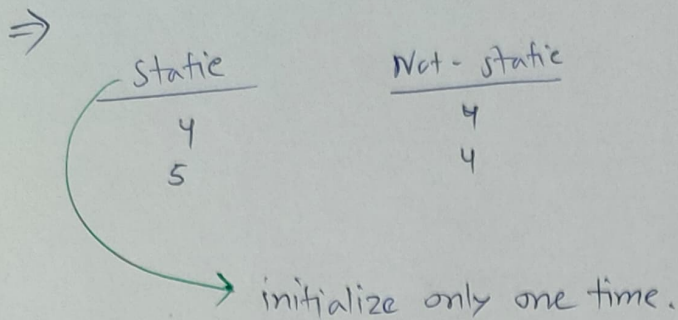 ⇒
Static Not-static
4 4
5 4
→ initialize only one time.